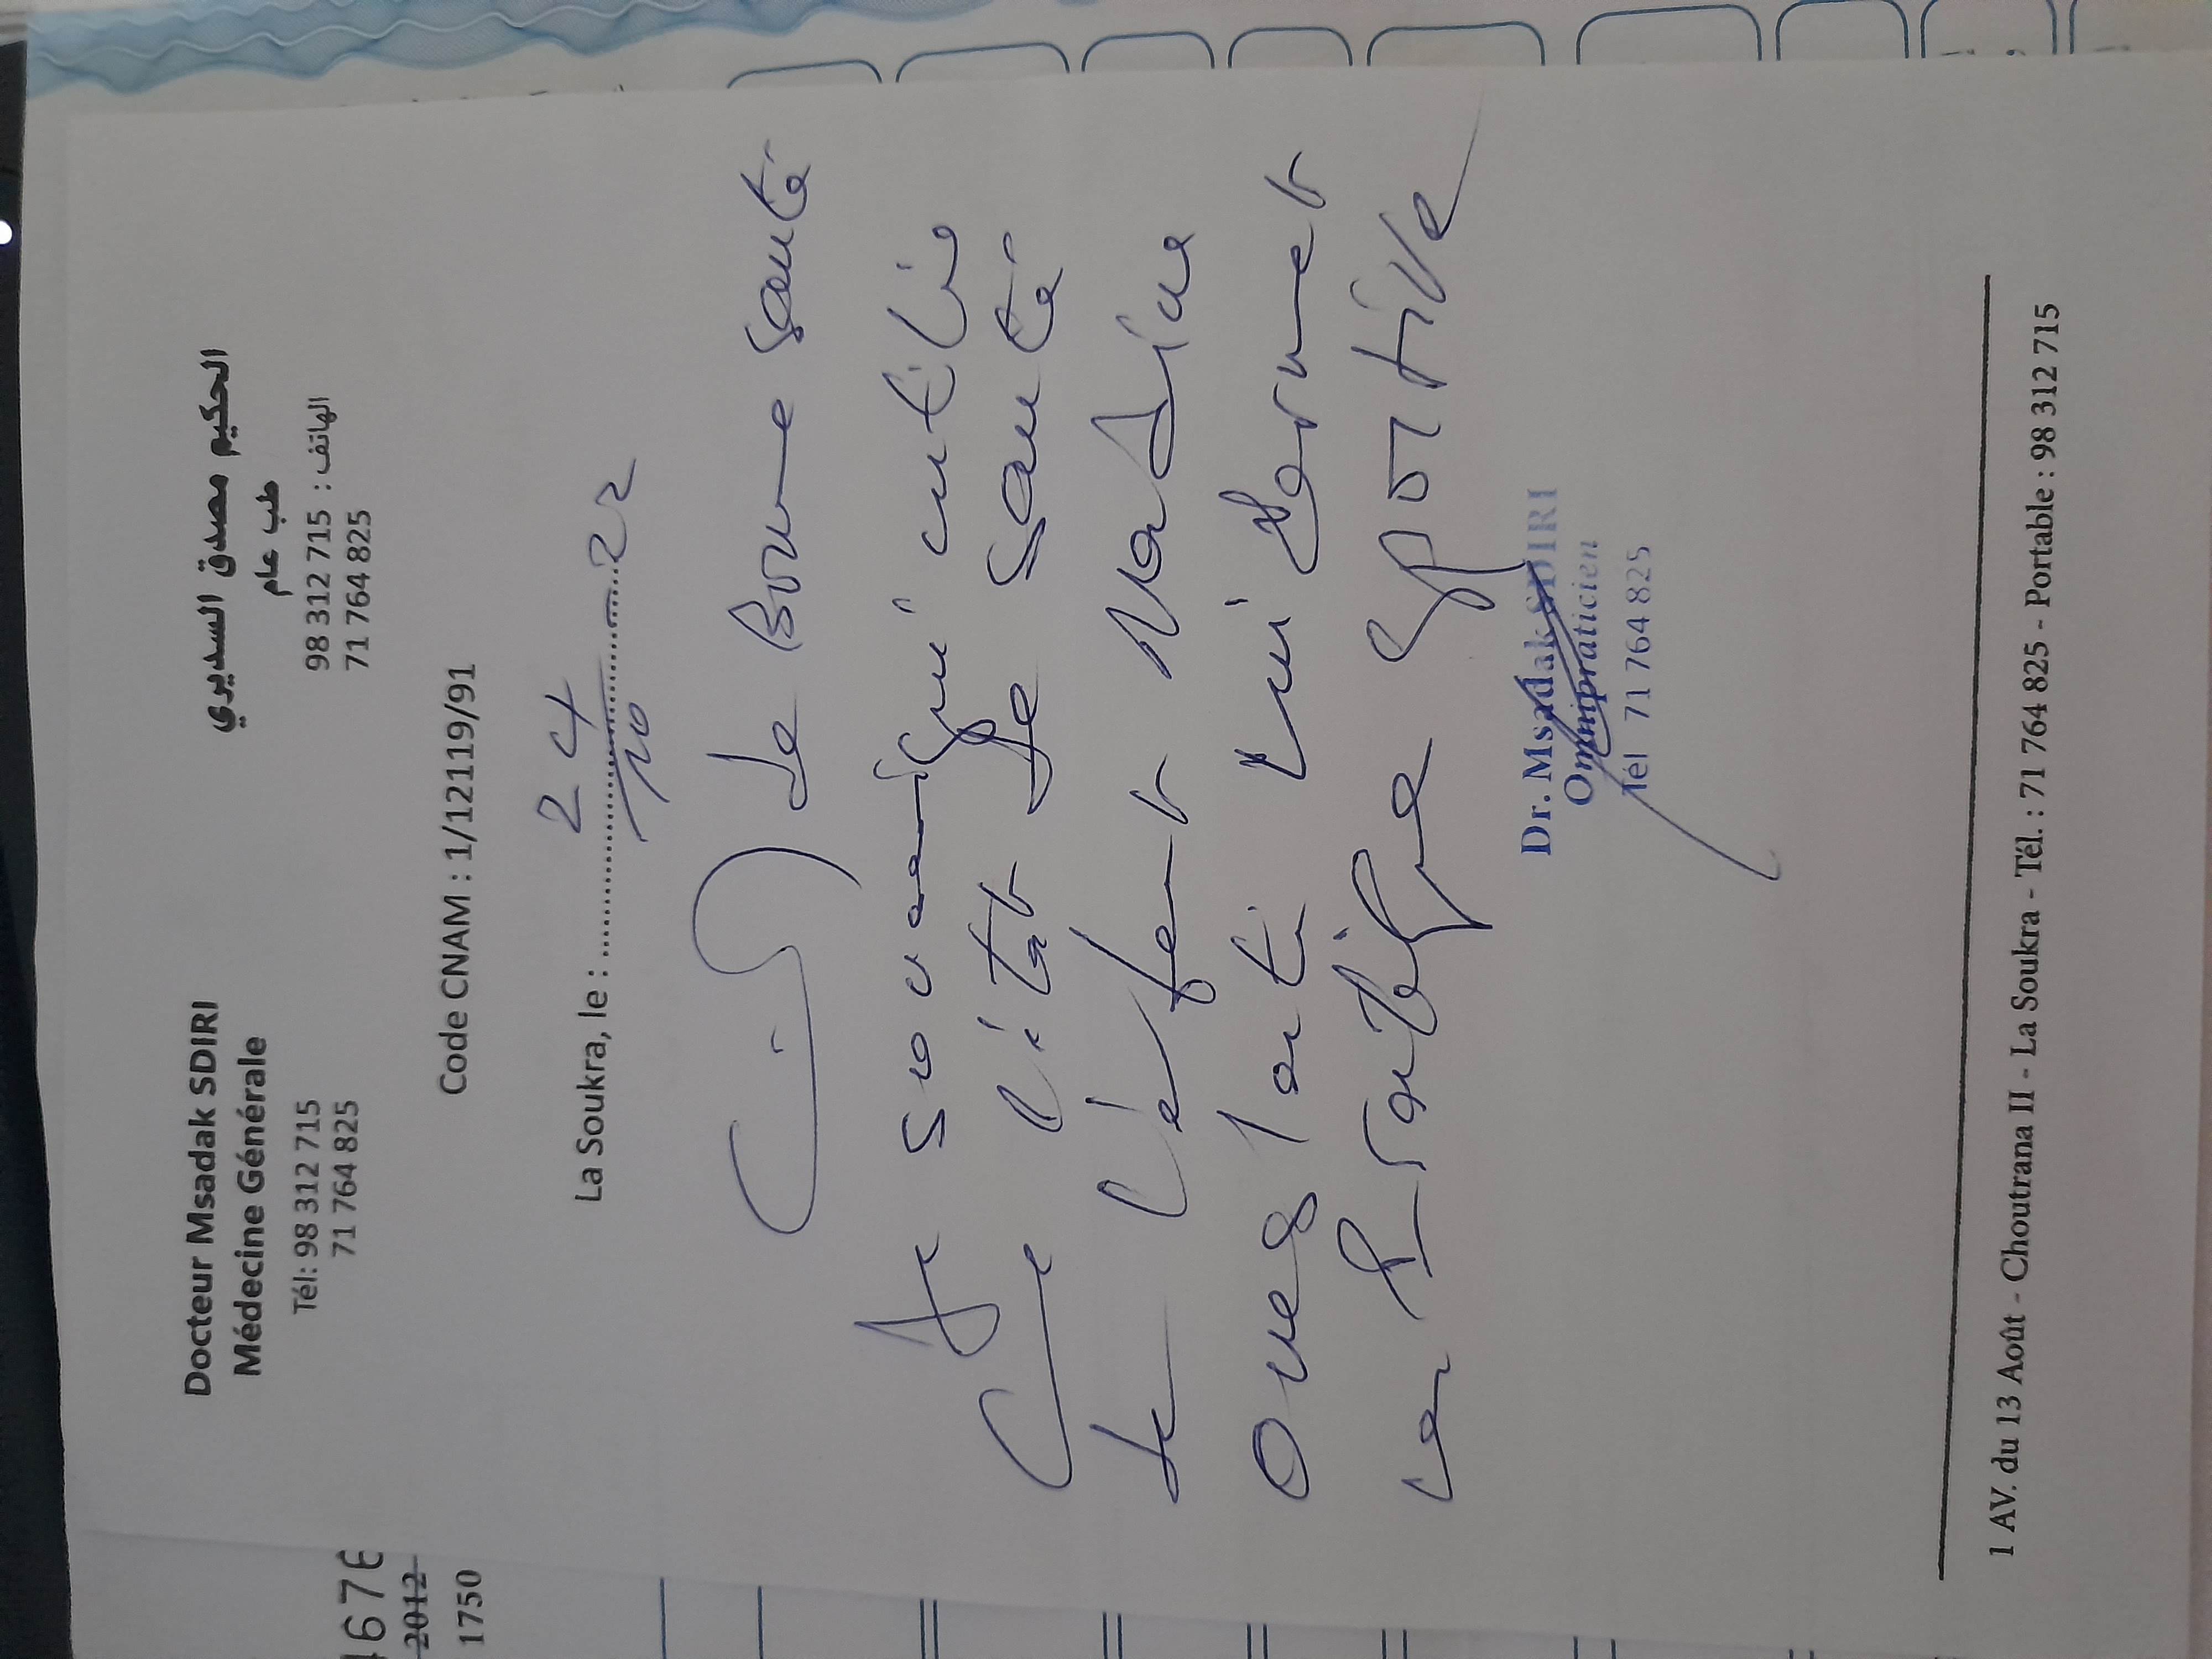 Docteur Msadak SDIRI
Médecine Générale
Tél: 98 312 715
71 764 825
الحكيم مصدق السديري
طب عام
الهاتف : 98 312 715
71 764 825
Code CNAM : 1/12119/91
La Soukra, le : 24/10 22
de Bonne Santé
Je soussigné certifie
que l'état de Santé
de l'enfant Nadine
lui permet
la Pratique Sportive
Dr. Msadak SDIRI
Omnipraticien
Tél 71 764 825
1 AV. du 13 Août - Choutrana II - La Soukra - Tél. : 71 764 825 - Portable : 98 312 715
2012
1750